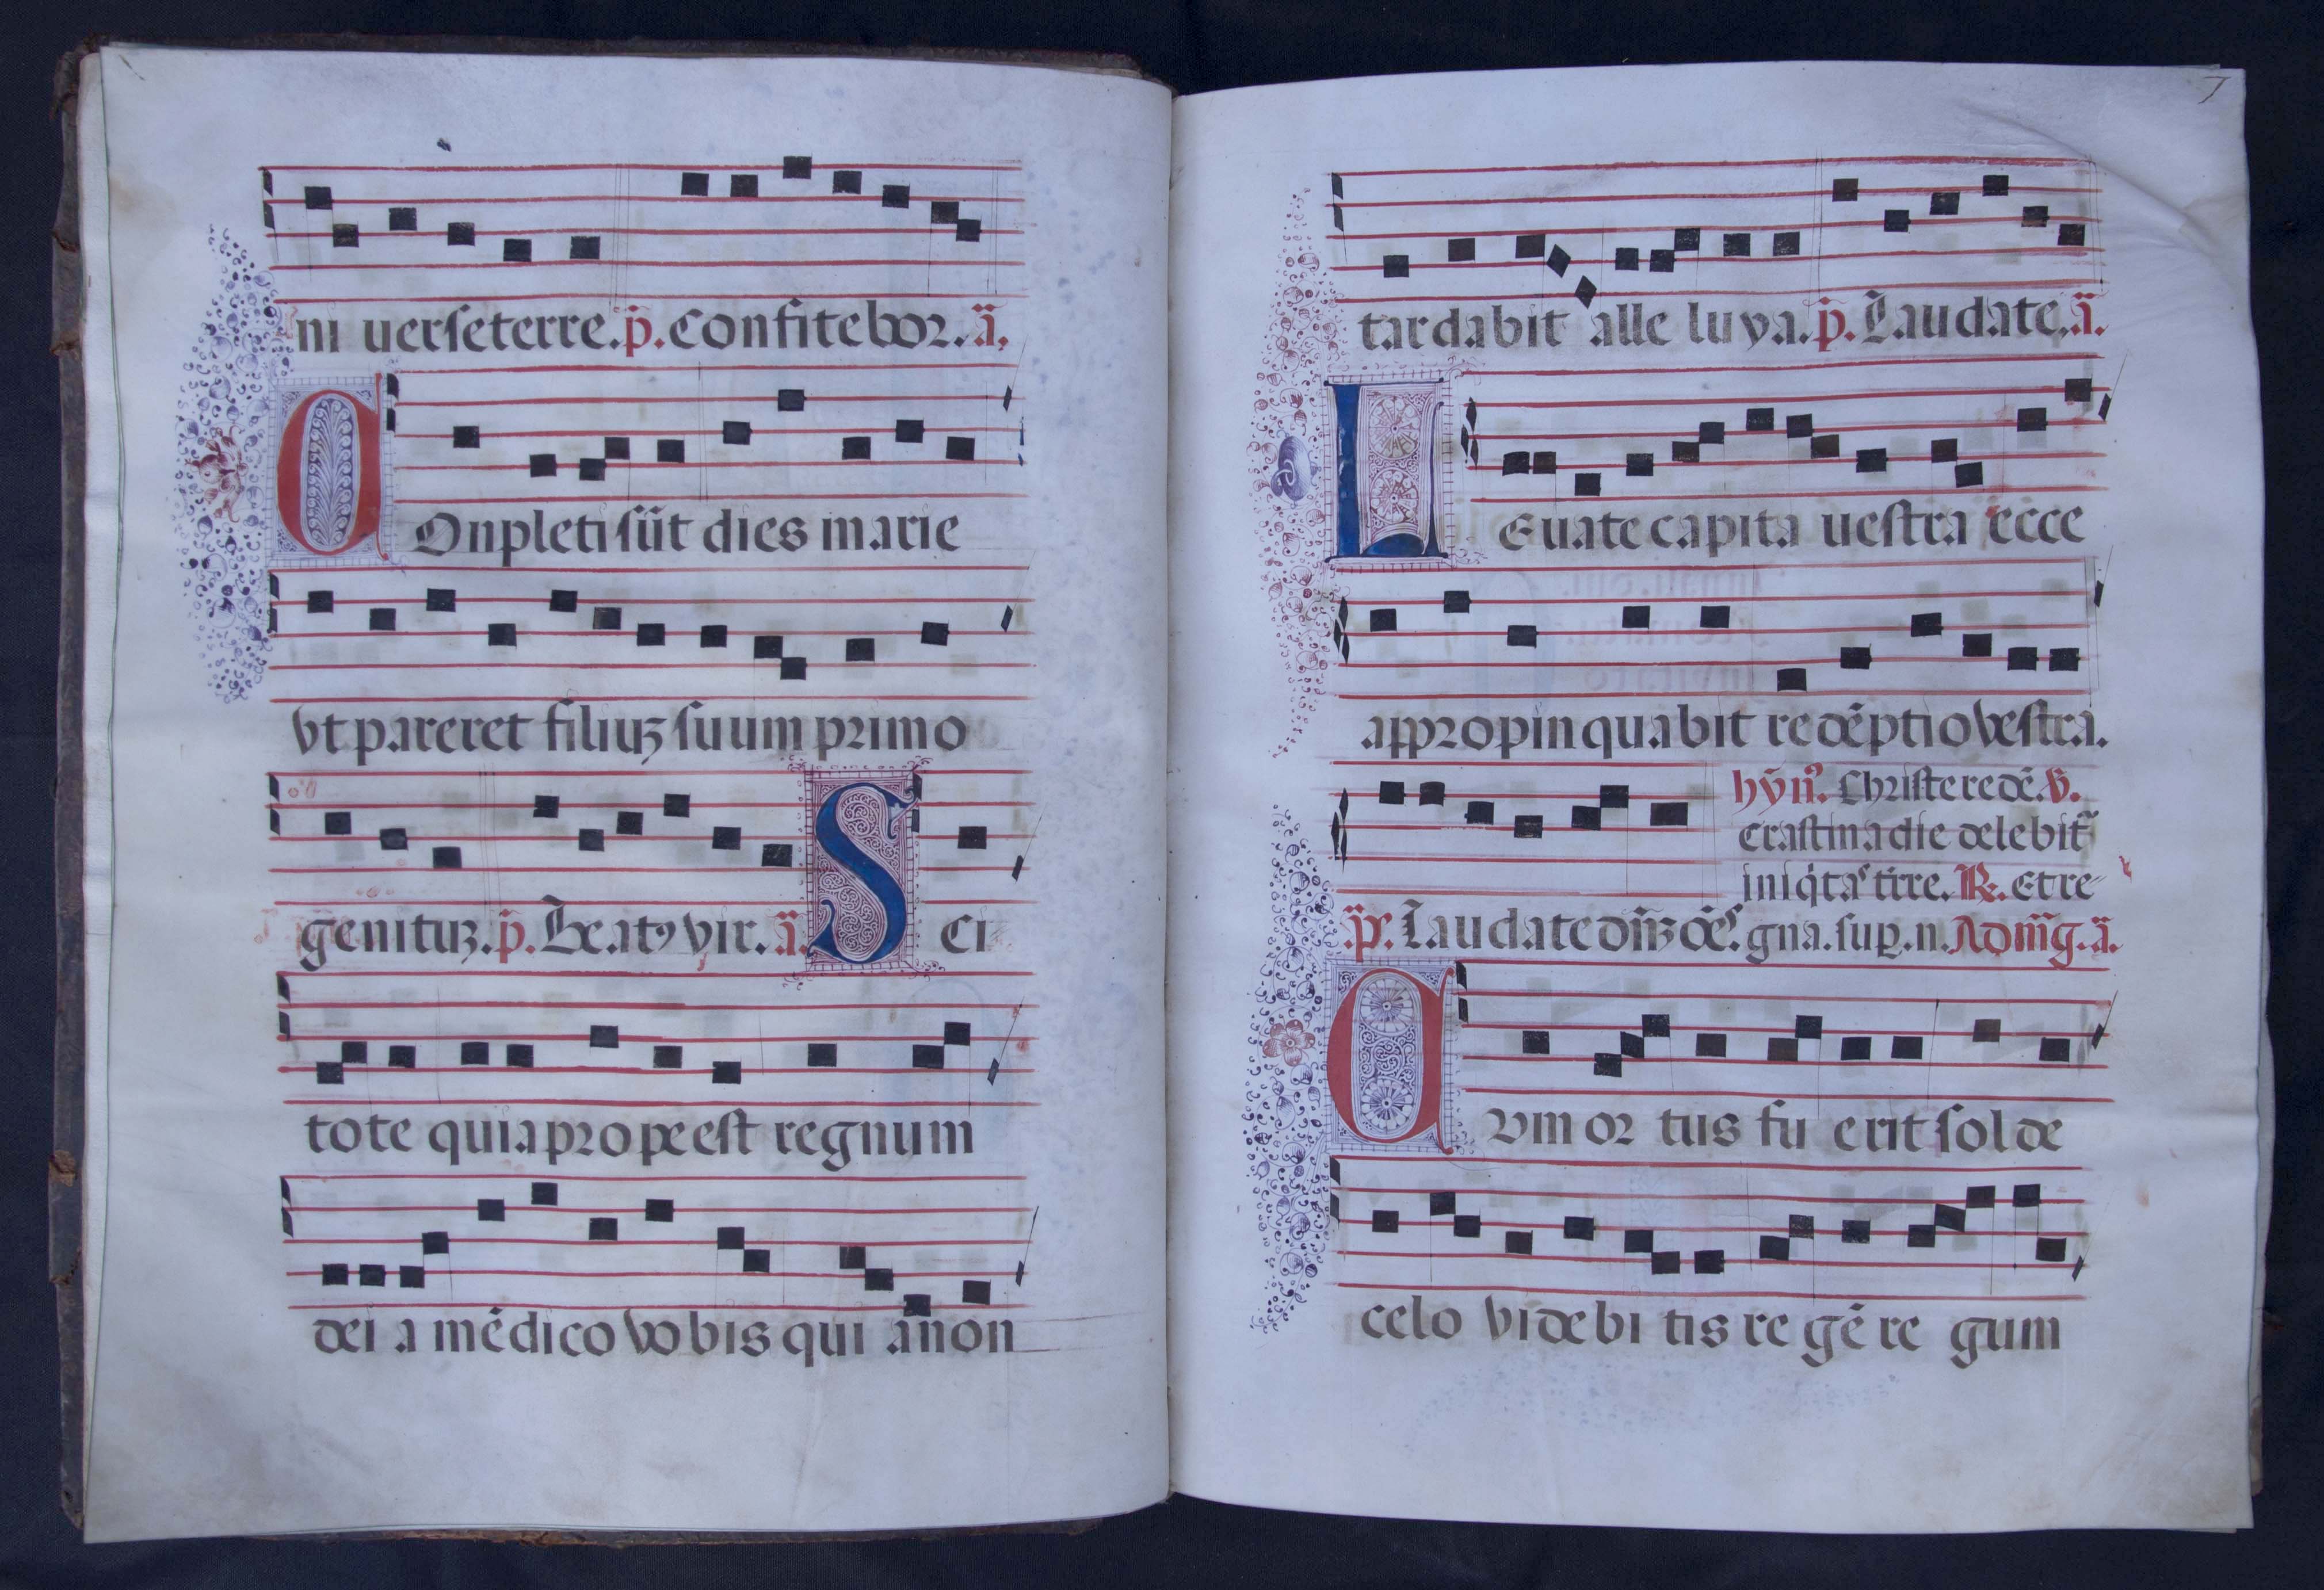 ni uerſeterre. p̄. Confitebor. ā.
COnpleti ſūt dies marie
vt pareret filiuꝫ ſuum primo
genituꝫ. p̄. Beatꝰ vir. ā. S ci
tote quia prope est regnum
dei a mēdico vobis qui a non
7
tardabit alle luya. p̄. Laudate. ā.
LEuate capita ueſtra ecce
appropinquabit redēptio veſtra.
hȳn̄. Chriſte redē. ꝟ.
Craſtina die delebit᷑
iniq̇taˢ tr̄re. ℟. Et re
p̄ˢ. Laudate dn̄ꝫ oēˢ. gna. ſuꝑ. n. Ad m̄g. ā.
CVm or tus fu erit ſol de
celo videbi tis re gē re gum